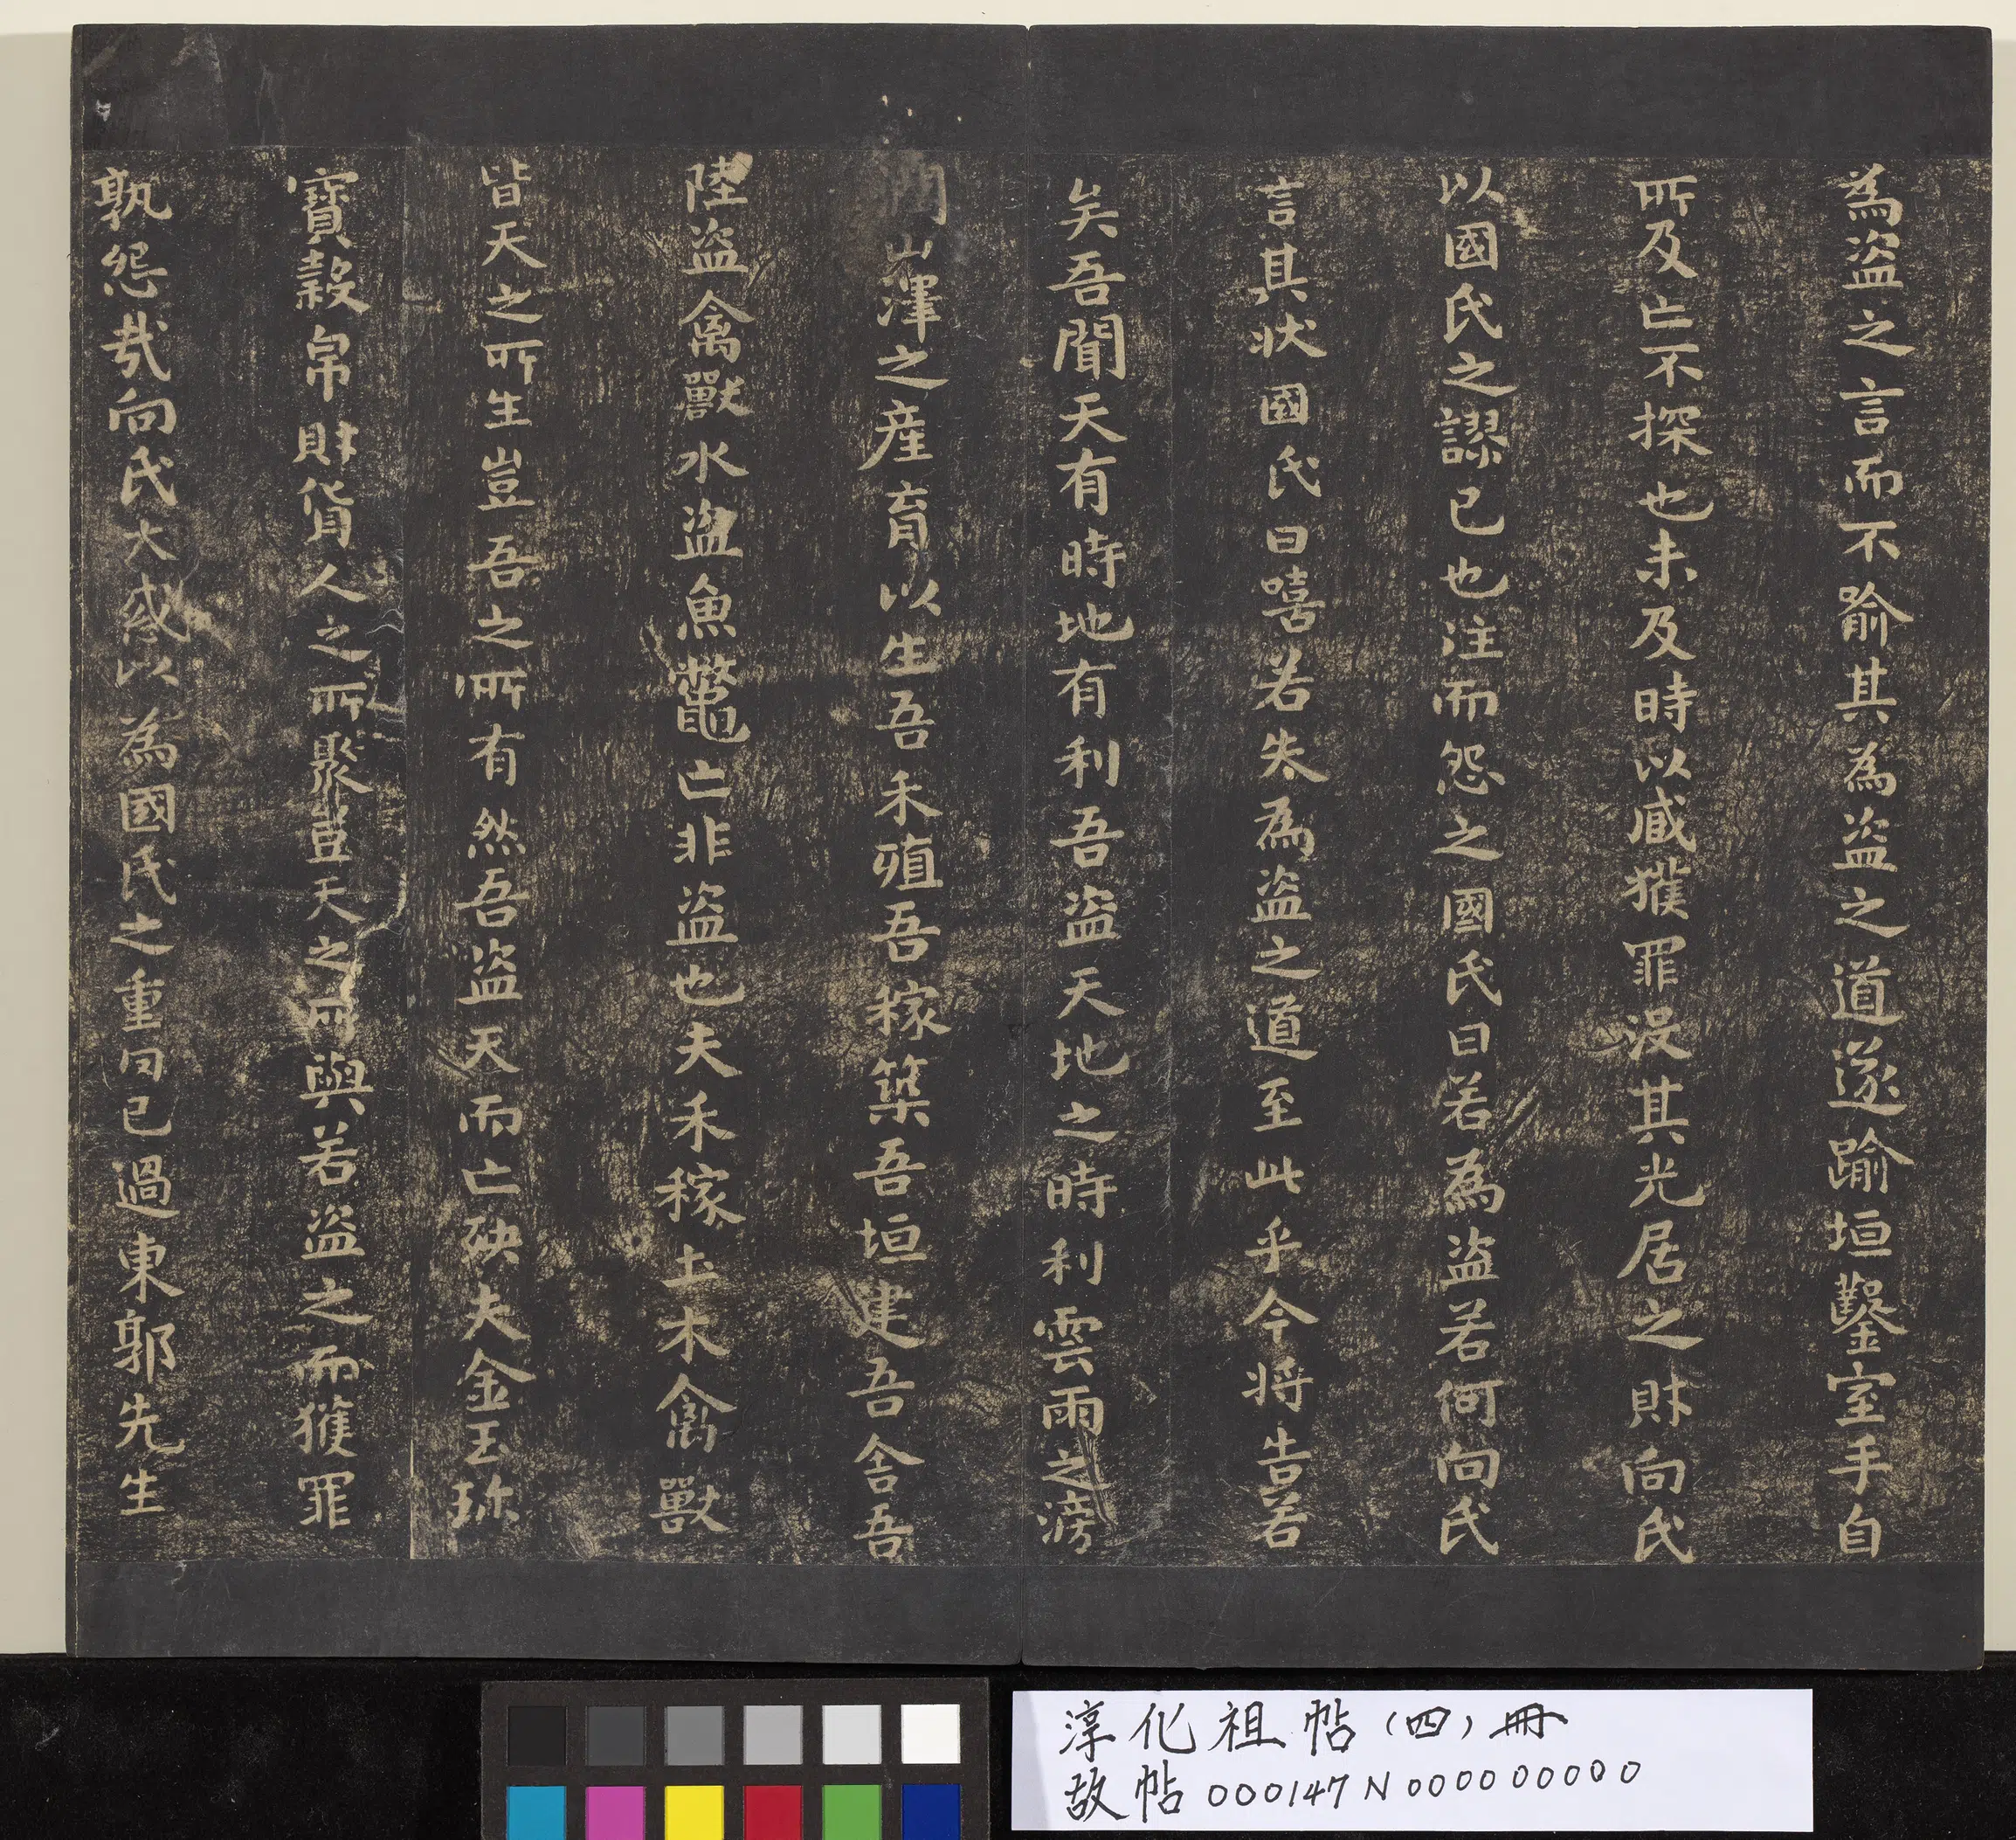 為盜之言而不喻其為盜之道遂踰垣鑿室手自
所及亡不探也未及時以臧獲罪沒其先居之財向氏
以國氏之謬已也往而怨之國氏曰若為盜若何向氏
言其狀國氏曰嘻若失為盜之道至此乎今将告若
矣吾聞天有時地有利吾盜天地之時利雲雨之滂
潤山澤之產育以生吾禾殖吾稼築吾垣建吾舍吾
陸盜禽獸水盜魚鼈亡非盜也夫禾稼土木禽獸
皆天之所生豈吾之所有然吾盜天而亡殃夫金玉珎
寶糓帛財貨人之所聚豈天之所與若盜之而獲罪
孰怨哉向氏大惑以為國氏之重罔已過東郭先生
淳化祖帖(四)冊
故帖000147N000000000